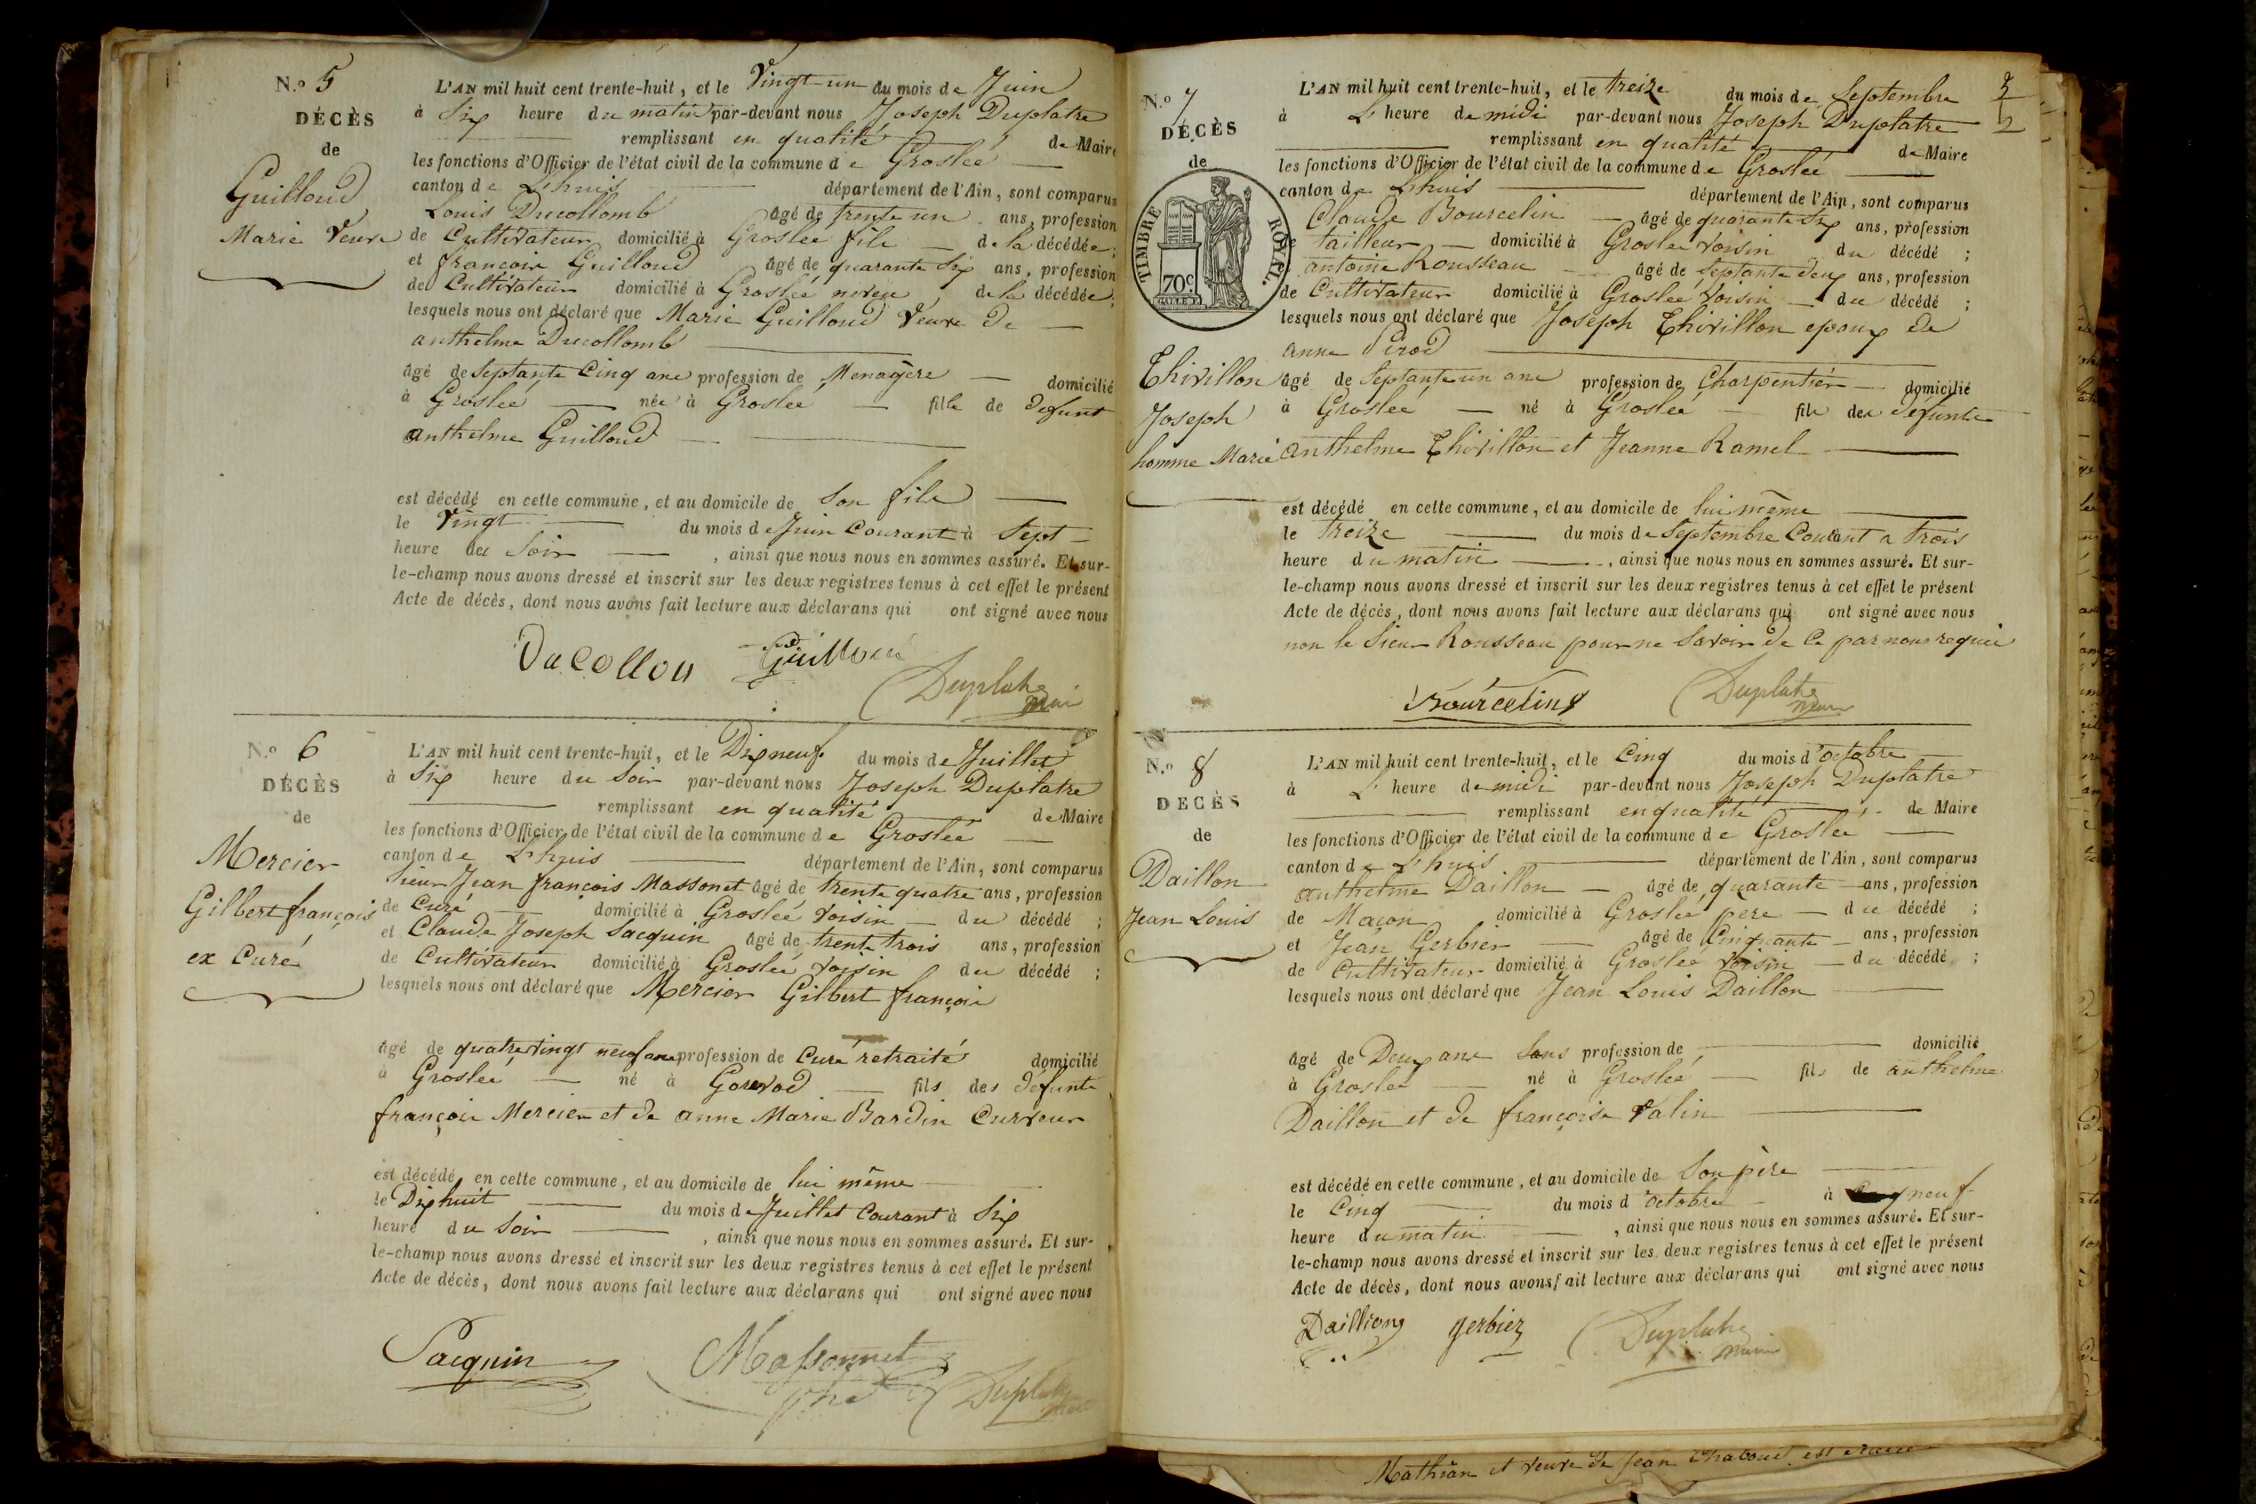 N.o 5
DÉCÈS
de
Guilloud
Marie Veuve
L'AN mil huit cent trente-huit, et le Vingt-un du mois de Juin
à Six heure du matin par-devant nous Joseph Duplatre
remplissant en qualité de Maire
les fonctions d'Officier de l'état civil de la commune de Groslée
canton de L'huis département de l'Ain, sont comparus
Louis Ducollomb âgé de trente un ans, profession
de Cultivateur domicilié à Groslée fils de la décédée;
et françois Guilloud âgé de quarante Six ans, profession
de Cultivateur domicilié à Groslée neveu de la décédée;
lesquels nous ont déclaré que Marie Guilloud Veuve de
anthelme Ducollomb
âgé de Septante Cinq ans profession de Menagère domicilié
à Groslée née à Groslée fille de défunt
anthelme Guilloud
est décédé en cette commune, et au domicile de Son fils
le Vingt du mois de Juin Courant à Sept
heure du Soir, ainsi que nous nous en sommes assuré. Et sur-
le-champ nous avons dressé et inscrit sur les deux registres tenus à cet effet le présent
Acte de décès, dont nous avons fait lecture aux déclarans qui ont signé avec nous
Ducollon Guilloud Duplatre
Maire
N.o 6
DÉCÈS
de
Mercier
Gilbert françois
ex Curé
L'AN mil huit cent trente-huit, et le Dix neuf du mois de Juillet
à Six heure du Soir par-devant nous Joseph Duplatre
remplissant en qualité de Maire
les fonctions d'Officier de l'état civil de la commune de Groslée
canton de L'huis département de l'Ain, sont comparus
Sieur Jean françois Massonet âgé de trente quatre ans, profession
de Curé domicilié à Groslée voisin du décédé;
et Claude Joseph Sacquin âgé de trente trois ans, profession
de Cultivateur domicilié à Groslée voisin du décédé;
lesquels nous ont déclaré que Mercier Gilbert françois
âgé de quatrevingt neuf ans profession de Curé retraité domicilié
à Groslée né à Gorevod fils des défunts
françois Mercier et de anne Marie Bardin Curveur
est décédé en cette commune, et au domicile de lui même
le Dix huit du mois de Juillet Courant à Six
heure du Soir, ainsi que nous nous en sommes assuré. Et sur-
le-champ nous avons dressé et inscrit sur les deux registres tenus à cet effet le présent
Acte de décès, dont nous avons fait lecture aux déclarans qui ont signé avec nous
Sacquin Massonnet Duplatre
N.o 7
DÉCÈS
de
TIMBRE ROYAL
70c.
Thivillon
Joseph
homme Marié
L'AN mil huit cent trente-huit, et le treize du mois de Septembre
à L' heure de midi par-devant nous Joseph Duplatre
remplissant en qualité de Maire
les fonctions d'Officier de l'état civil de la commune de Groslée
canton de L'huis département de l'Ain, sont comparus
Claude Bourcelin âgé de quarante Six ans, profession
tailleur domicilié à Groslée voisin du décédé;
antoine Rousseau âgé de Septante deux ans, profession
de Cultivateur domicilié à Groslée Voisin du décédé;
lesquels nous ont déclaré que Joseph Thivillon epoux de
anne Pirod
âgé de Septante un ans profession de Charpentier domicilié
à Groslée né à Groslée fils des défunts
anthelme Thivillon et Jeanne Ramel
est décédé en cette commune, et au domicile de lui même
le treize du mois de Septembre Courant a trois
heure du matin, ainsi que nous nous en sommes assuré. Et sur-
le-champ nous avons dressé et inscrit sur les deux registres tenus à cet effet le présent
Acte de décès, dont nous avons fait lecture aux déclarans qui ont signé avec nous
non le Sieur Rousseau pour ne Savoir de Ce par nous requis
Bourcelin Duplatre
Maire
N.o 8
DÉCÈS
de
Daillon
Jean Louis
L'AN mil huit cent trente-huit, et le Cinq du mois d'octobre
à L' heure de midi par-devant nous Joseph Duplatre
remplissant en qualité de Maire
les fonctions d'Officier de l'état civil de la commune de Groslée
canton de L'huis département de l'Ain, sont comparus
anthelme Daillon âgé de quarante ans, profession
de Maçon domicilié à Groslée pere du décédé;
et Jean Gerbier âgé de Cinquante ans, profession
de Cultivateur domicilié à Groslée voisin du décédé;
lesquels nous ont déclaré que Jean Louis Daillon
âgé de Deux ans Sans profession de domicilié
à Groslée né à Groslée fils de anthelme
Daillon et de françoise Valin
est décédé en cette commune, et au domicile de Son père
le Cinq du mois d'octobre à neuf
heure du matin, ainsi que nous nous en sommes assuré. Et sur-
le-champ nous avons dressé et inscrit sur les deux registres tenus à cet effet le présent
Acte de décès, dont nous avons fait lecture aux déclarans qui ont signé avec nous
Dailliong gerbier Duplatre
Maire
Mathian et veuve de Jean Chaboud est